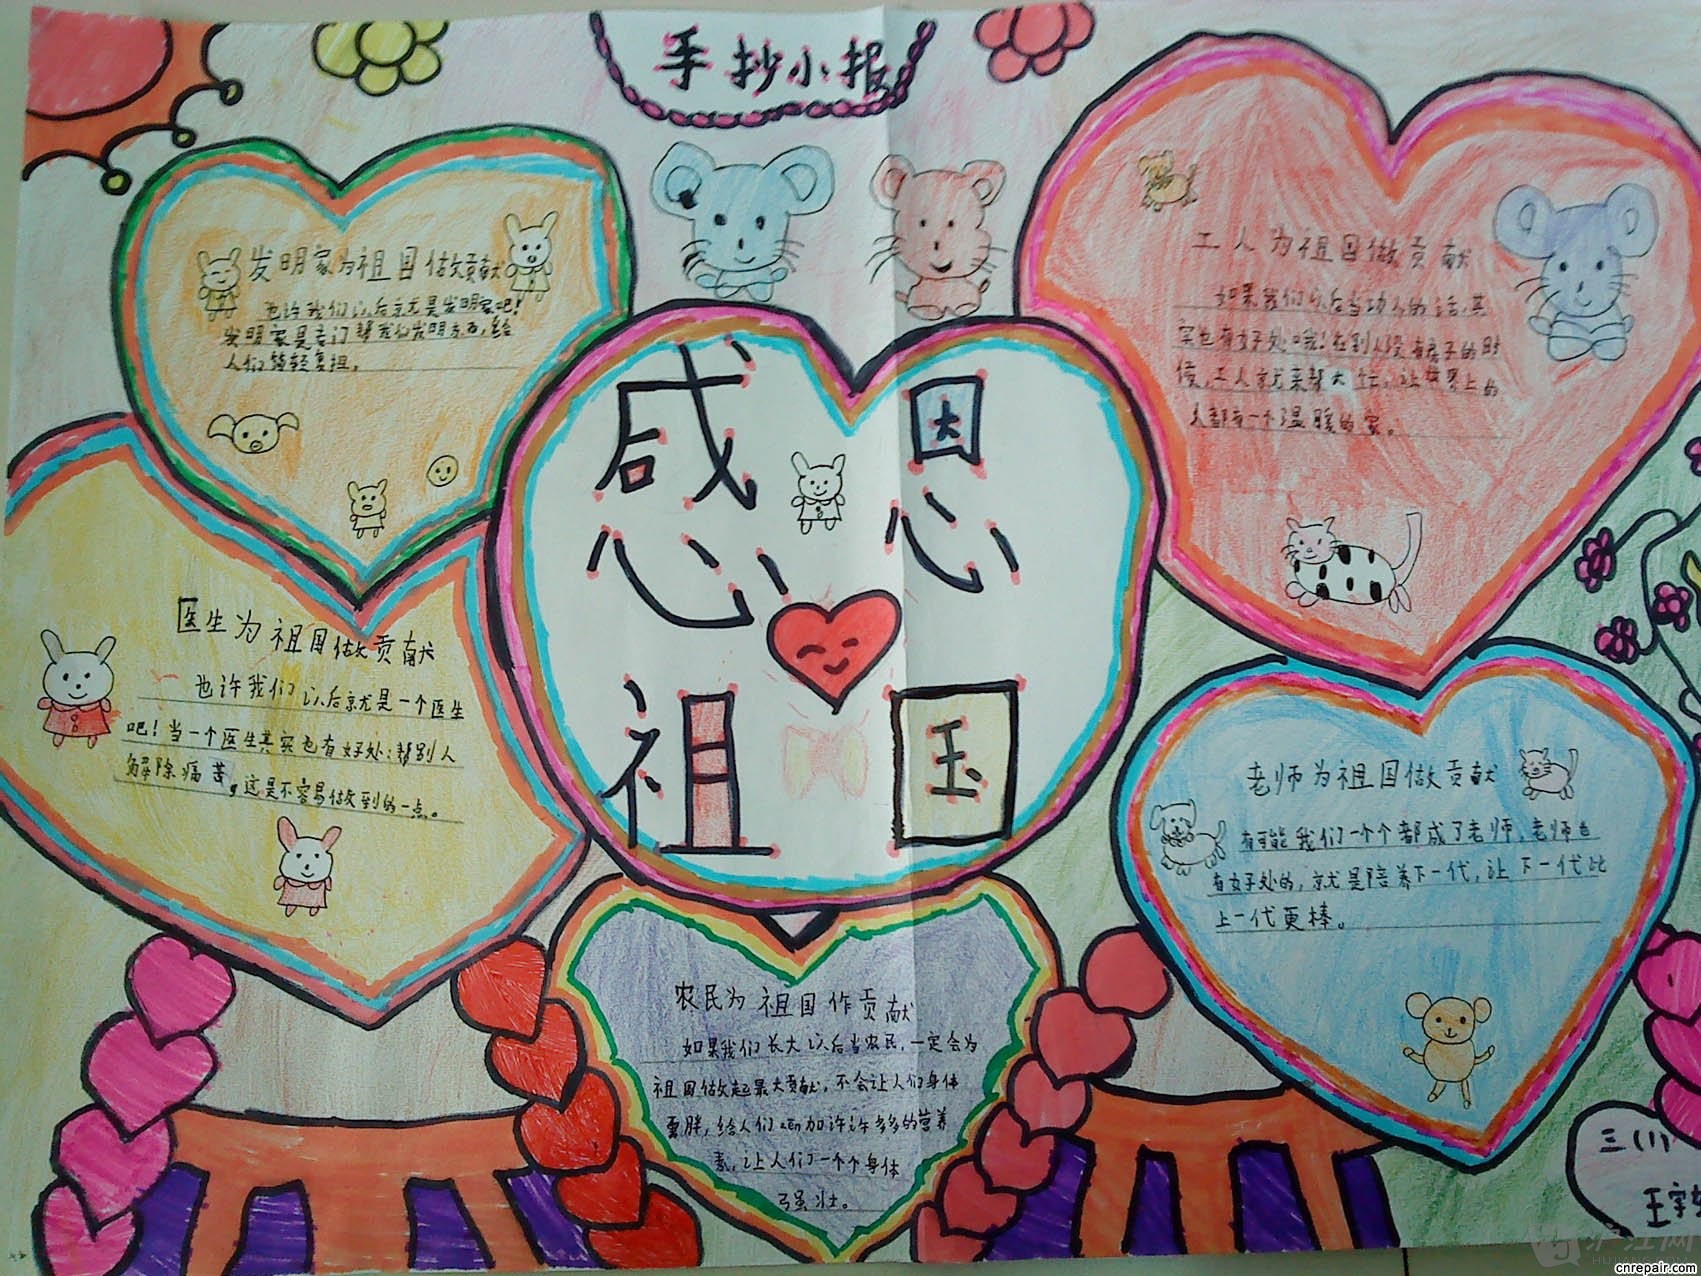 手抄小报
发明家为祖国做贡献
也许我们以后就是发明家吧!
发明家是专门帮我们发明东西,给
人们减轻负担。
感恩
祖国
工人为祖国做贡献
如果我们以后当工人的话,其
实也有好处哦!在别人没有房子的时
候,工人就来帮大忙,让世界上的
人都有一个温暖的家。
医生为祖国做贡献
也许我们以后就是一个医生
吧!当一个医生其实也有好处:帮别人
解除痛苦,这是不容易做到的一点。
老师为祖国做贡献
有可能我们一个个都成了老师,老师也
有好处的,就是培养下一代,让下一代比
上一代更棒。
农民为祖国作贡献
如果我们长大以后当农民,一定会为
祖国做起最大贡献,不会让人们身体
变胖,给人们zen加许许多多的营养
素,让人们一个个身体
强壮。
三(1)
王宇
沪江网
cnrepair.com